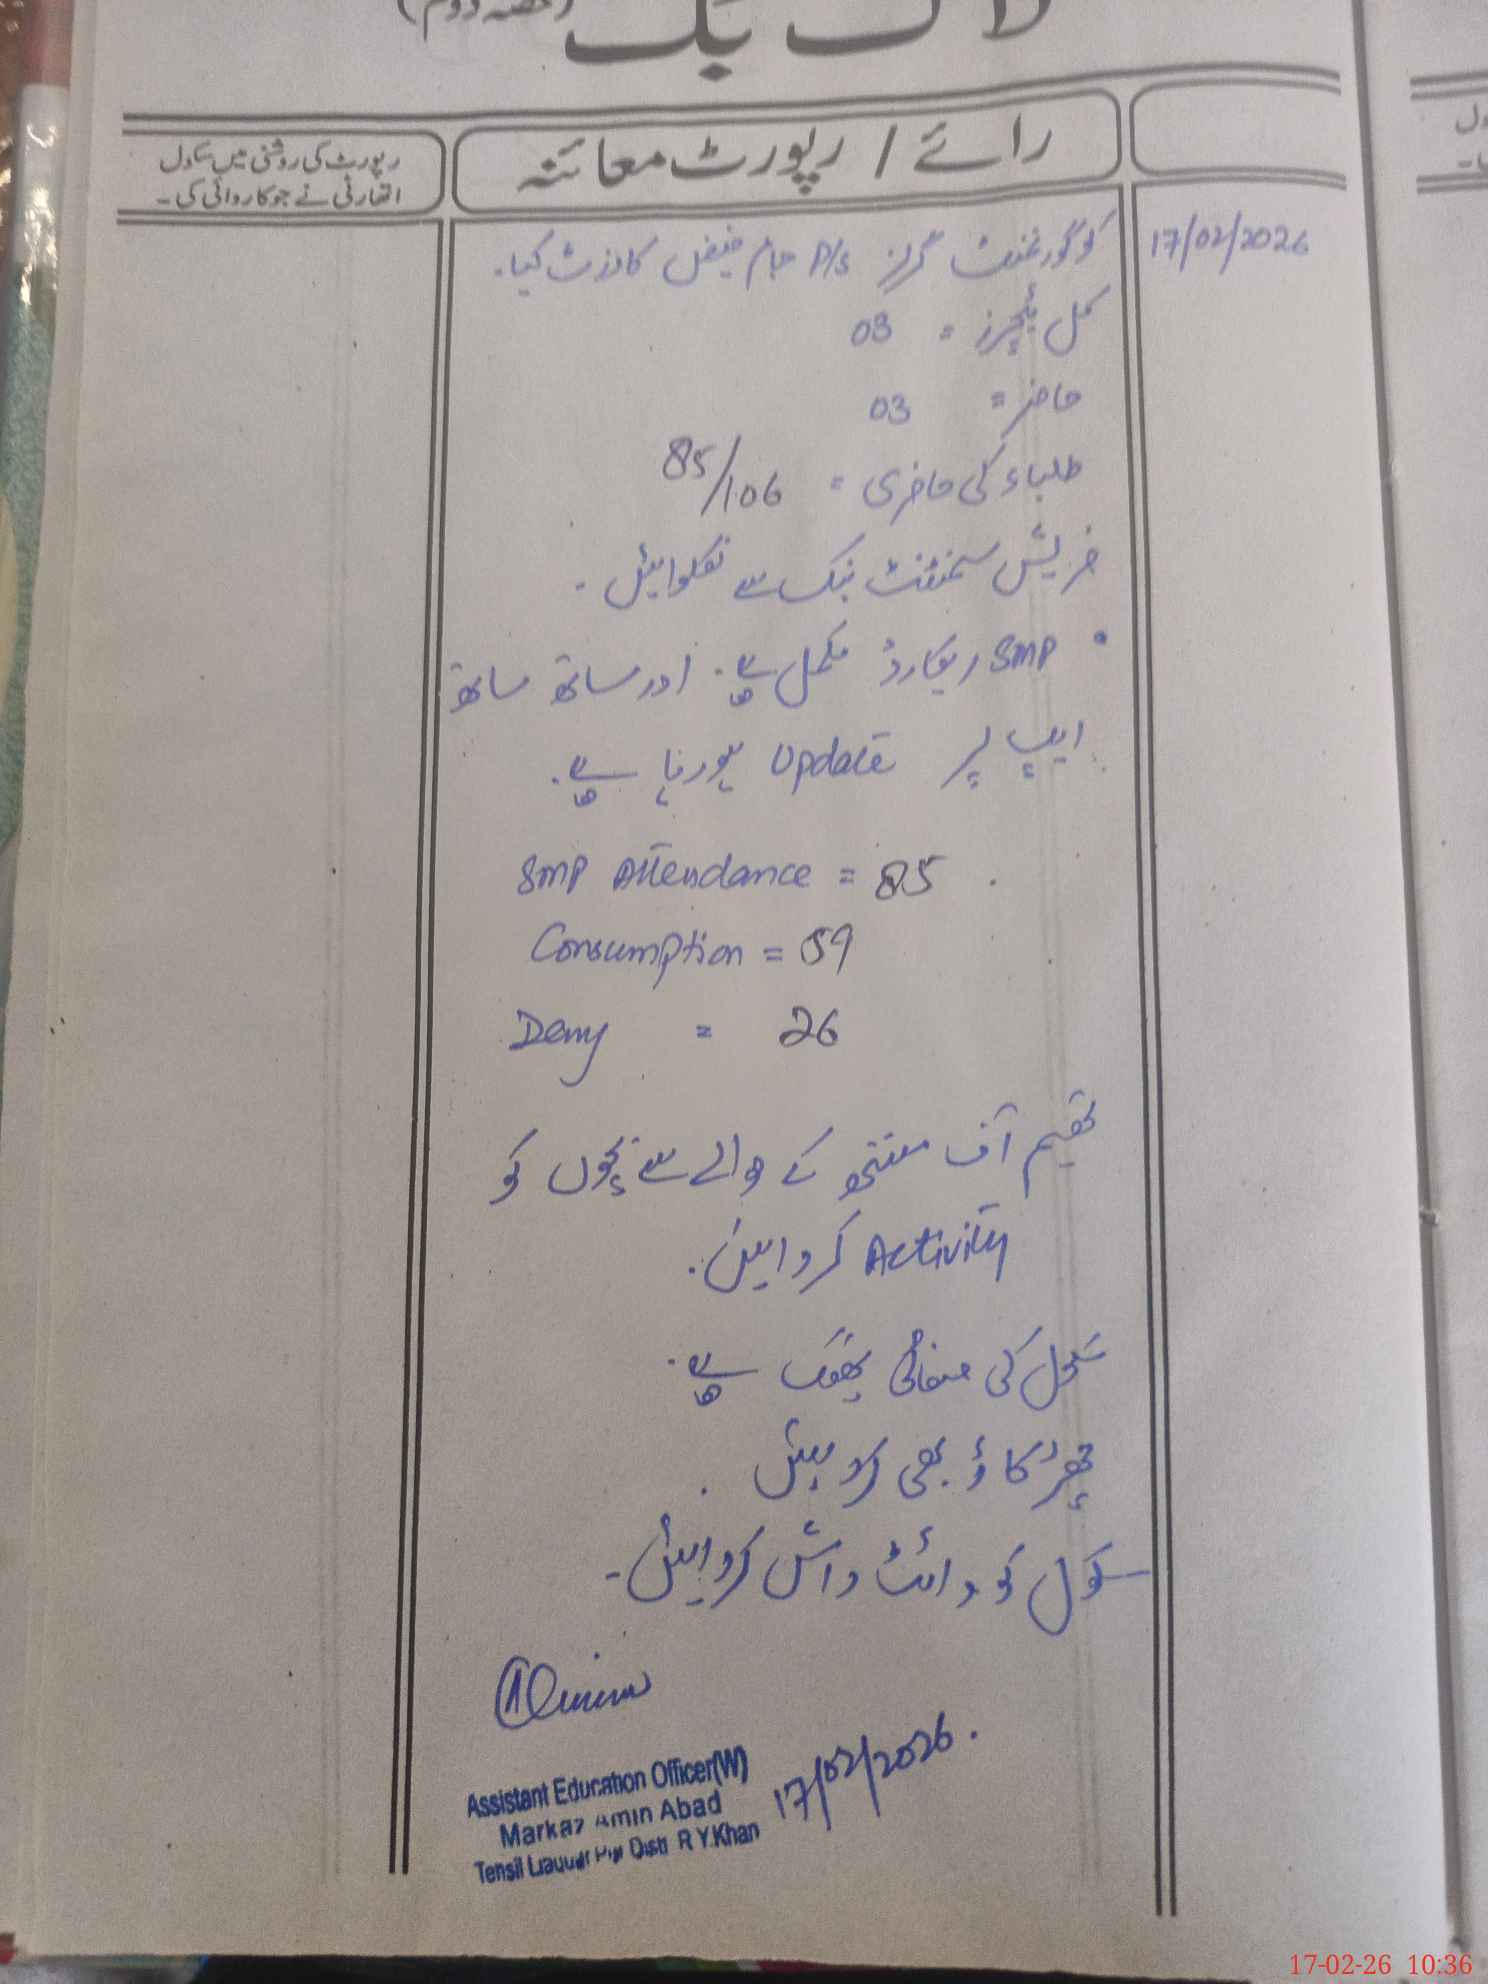 لاگ بک (حصہ دوم)
رائے / رپورٹ معائنہ
رپورٹ کی روشنی میں سکول
اتھارٹی نے جو کاروائی کی۔
17/02/2026
کو گورنمنٹ گرلز P/S جام فیض کا وزٹ کیا۔
کل ٹیچرز = 03
حاضر = 03
طلباء کی حاضری = 85/106
فریش سٹیٹمنٹ بنک سے نکلوائیں۔
• SMP ریکارڈ مکمل ہے۔ اور ساتھ ساتھ
ایپ پر Update ہو رہا ہے۔
SMP Attendance = 85
Consumption = 59
Deny = 26
تھیم آف منتھ کے حوالے سے بچوں کو
Activity کروائیں۔
سکول کی صفائی ٹھیک ہے۔
چھڑکاؤ بھی کروائیں۔
سکول کو وائٹ واش کروائیں۔
Assistant Education Officer(W)
Markaz Amin Abad
Distt R Y.Khan
17/02/2026.
17-02-26 10:36